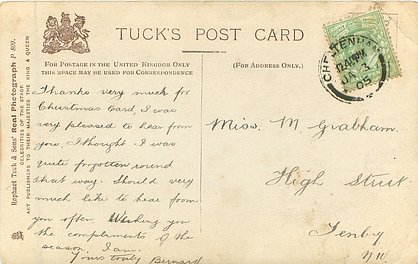 TUCK'S POST CARD
FOR POSTAGE IN THE UNITED KINGDOM ONLY
THIS SPACE MAY BE USED FOR CORRESPONDENCE
(FOR ADDRESS ONLY.)
Raphael Tuck & Sons' Real Photograph P 809.
CELEBRITIES OF THE STAGE
ART PUBLISHERS TO THEIR MAJESTIES THE KING & QUEEN
CHELTENHAM
JA 3
05
Thanks very much for
Christmas Card, I was
very pleased to hear from
you, I thought I was
quite forgotten round
that way. Should very
much like to hear from
you often, Wishing you
the compliments of the
season I am
Yours truly Bernard
Miss. M. Grabham.
High Street
Tenby